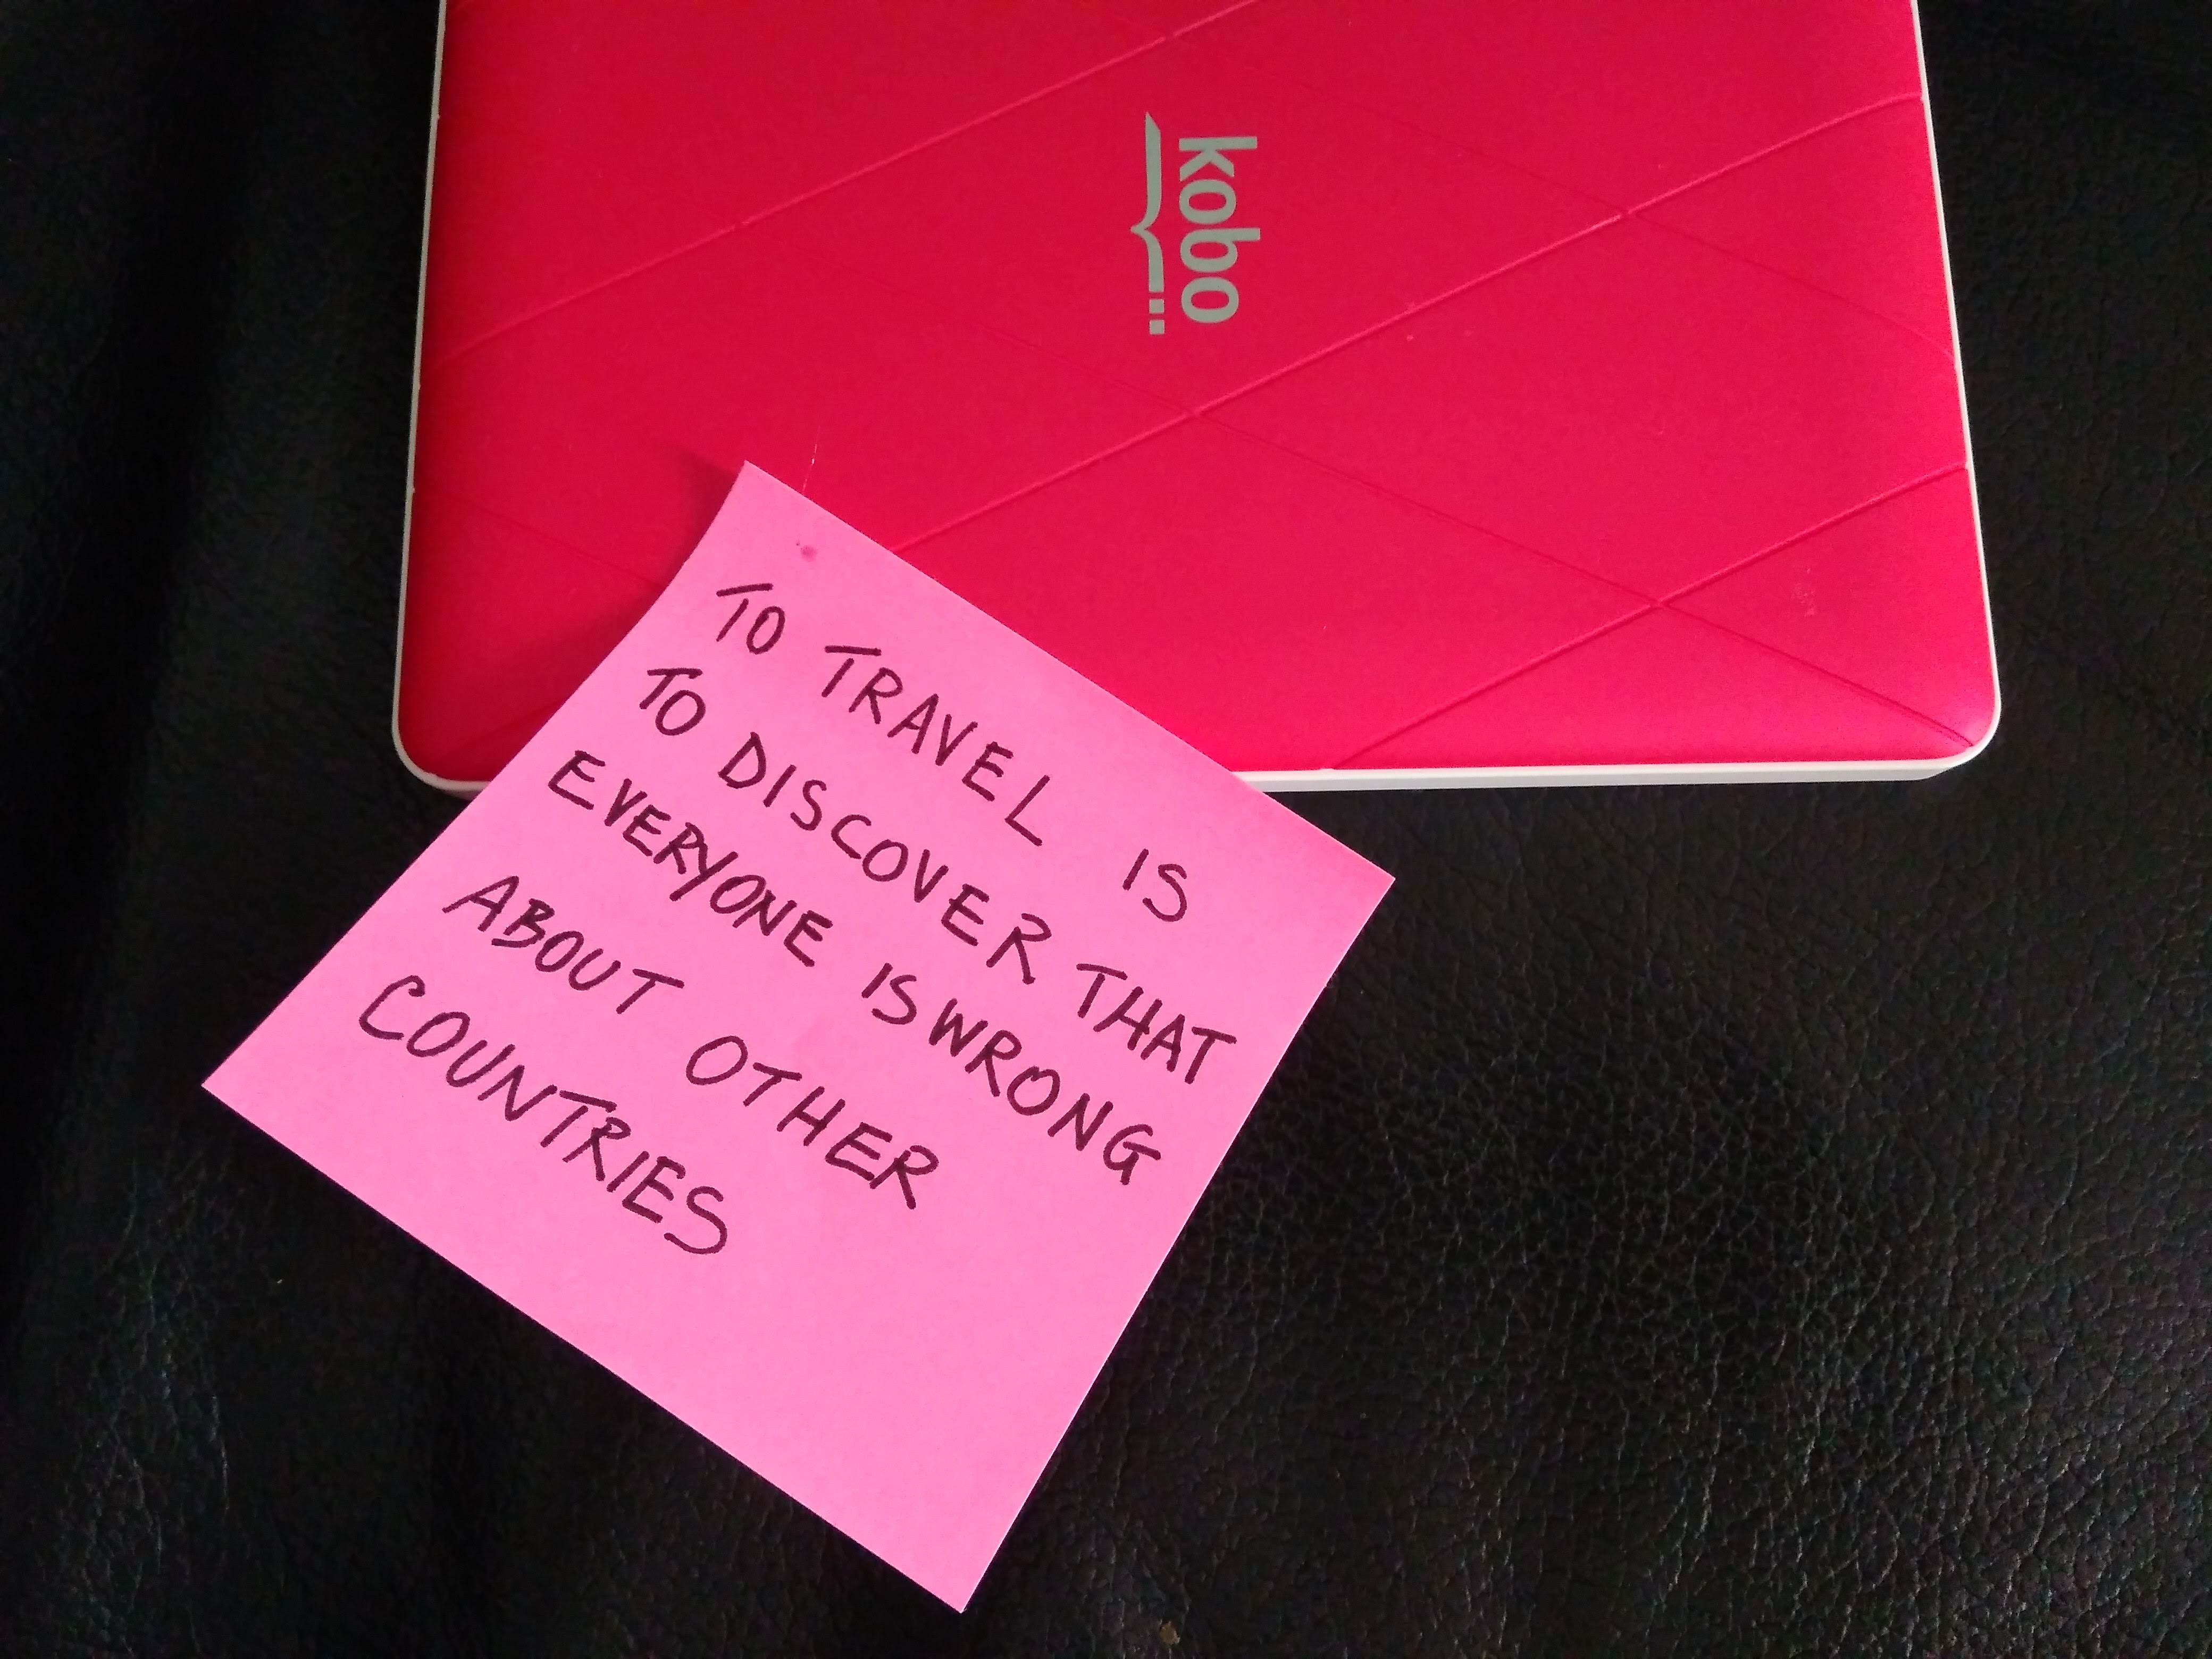 kobo
TO TRAVEL IS
TO DISCOVER THAT
EVERYONE IS WRONG
ABOUT OTHER
COUNTRIES